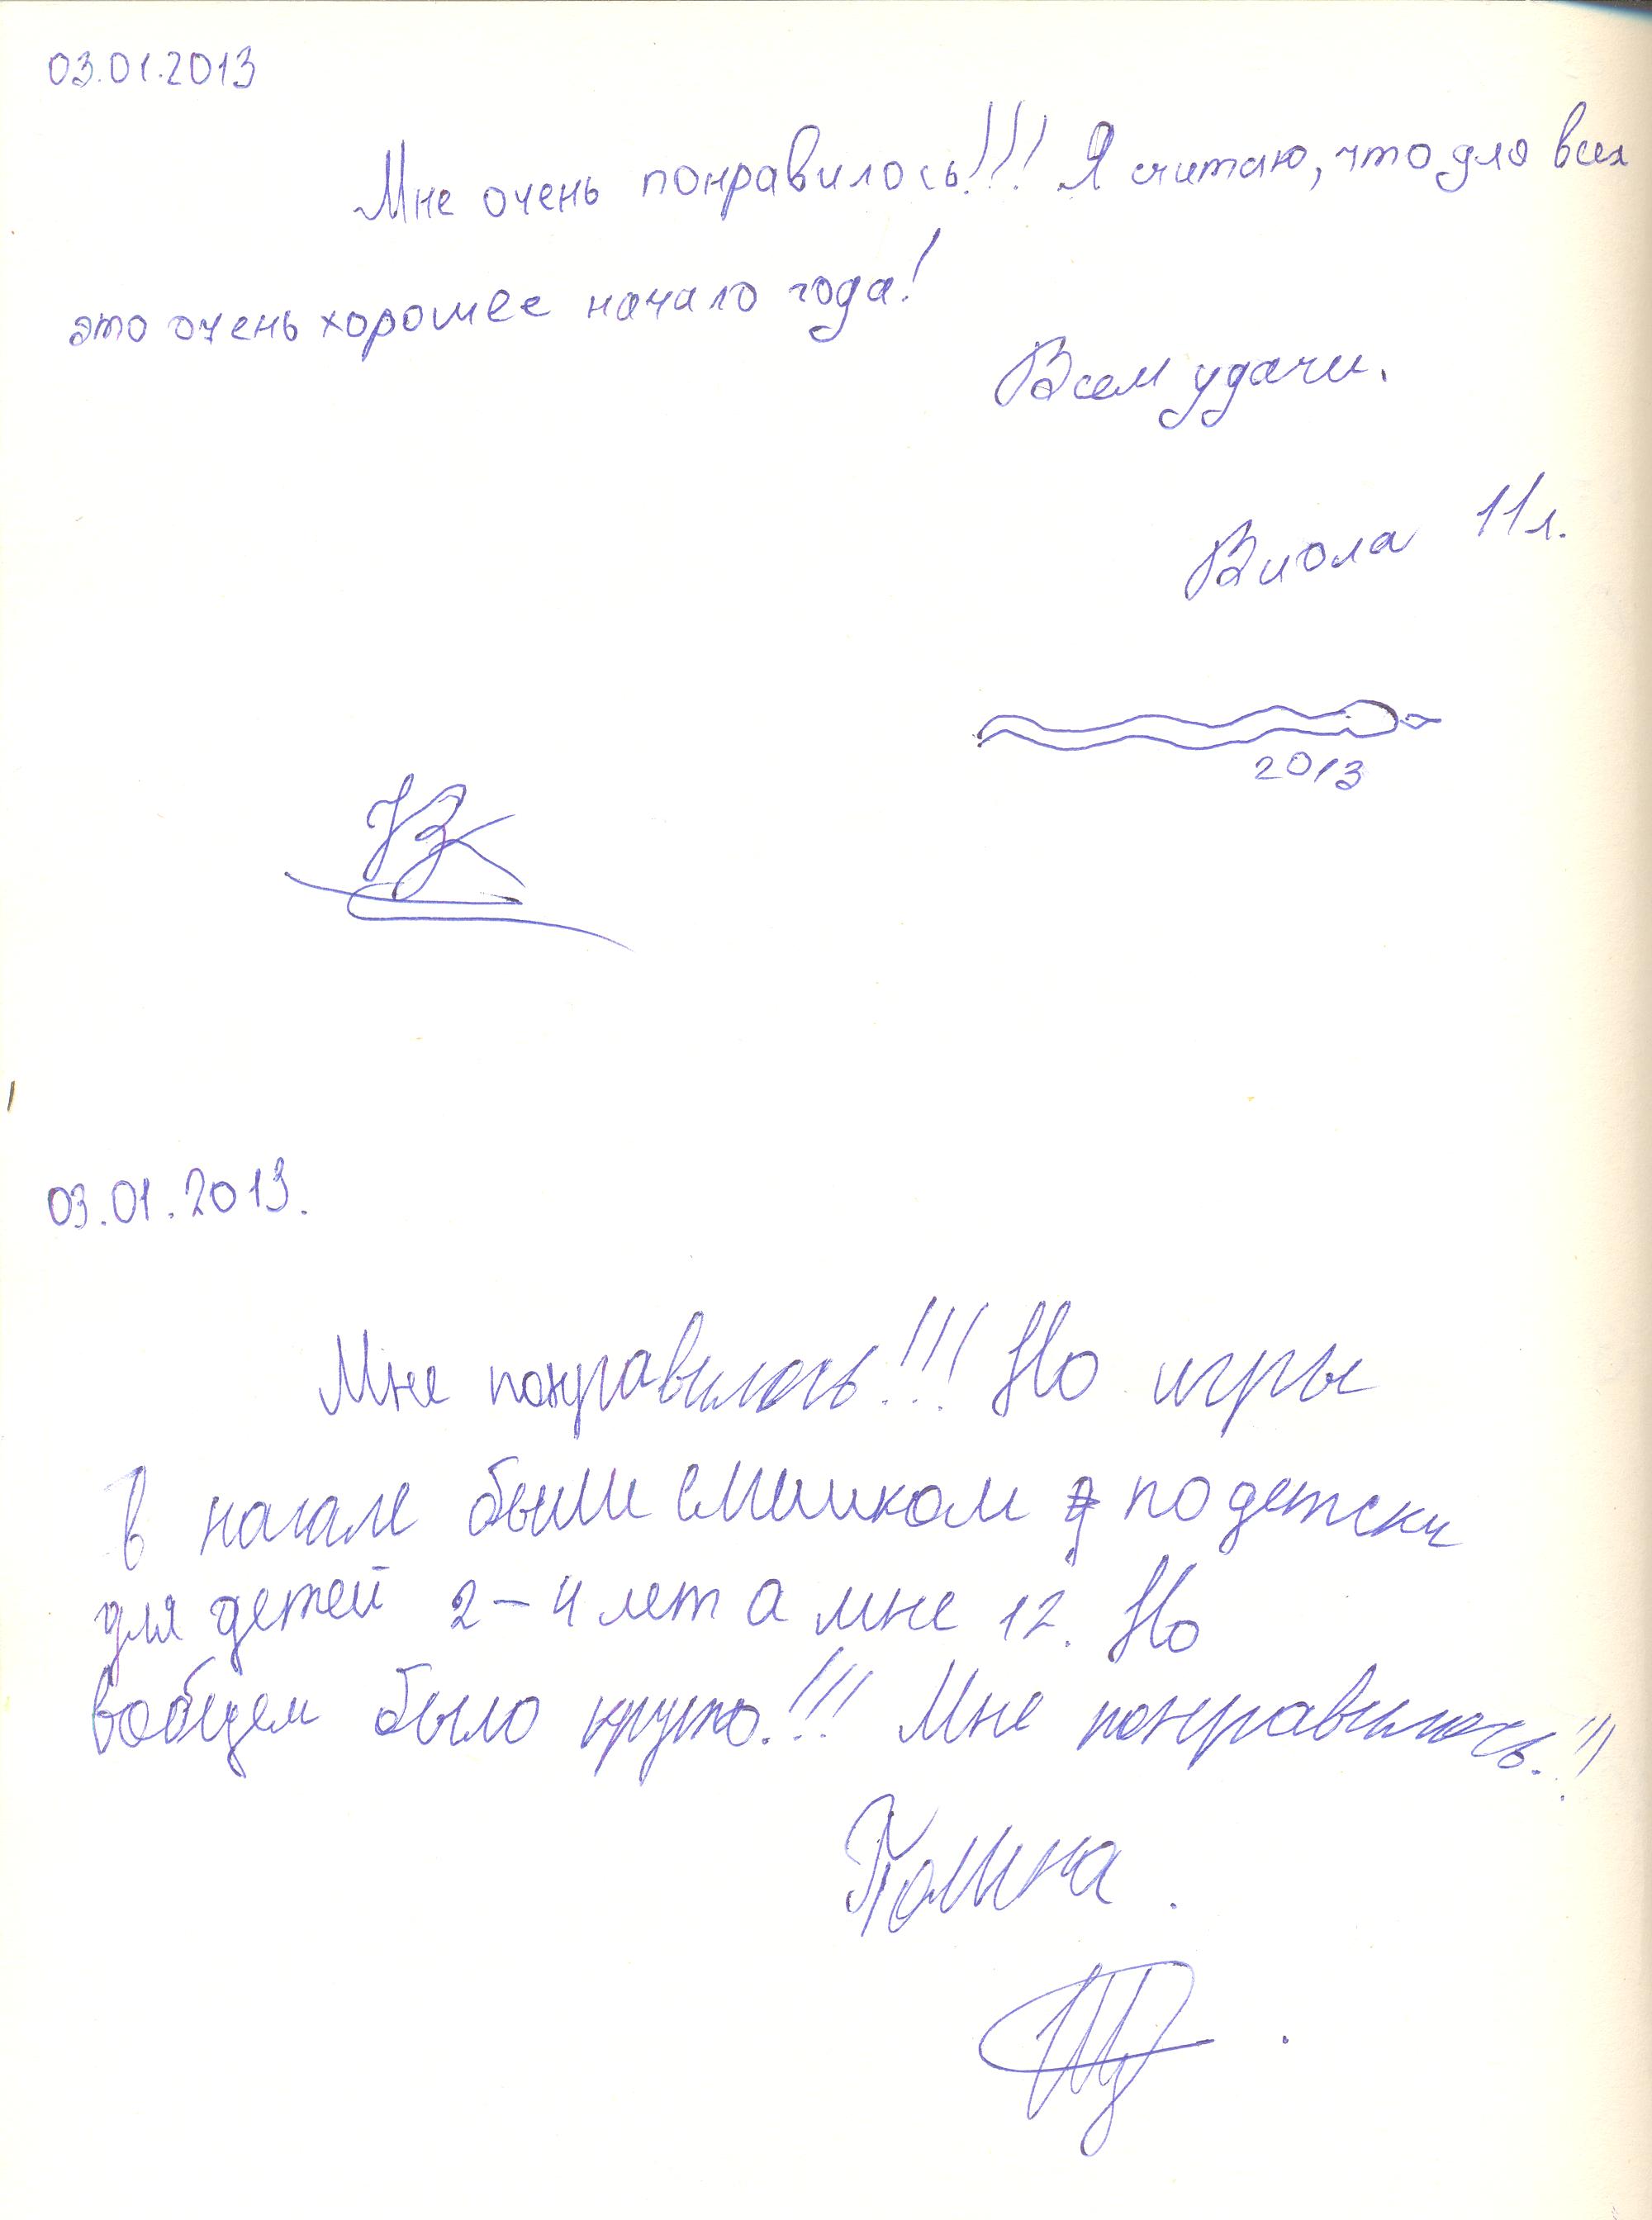 03.01.2013
Мне очень понравилось!!! Я считаю, что для всех
это очень хорошее начало года!
Всем удачи.
Виола 11 л.
2013
03.01.2013.
Мне понравилось!!! Но игры
в начале были слишком по детски
для детей 2-4 лет а мне 12. Но
вобщем было круто!!! Мне понравилось!!!
Полина.